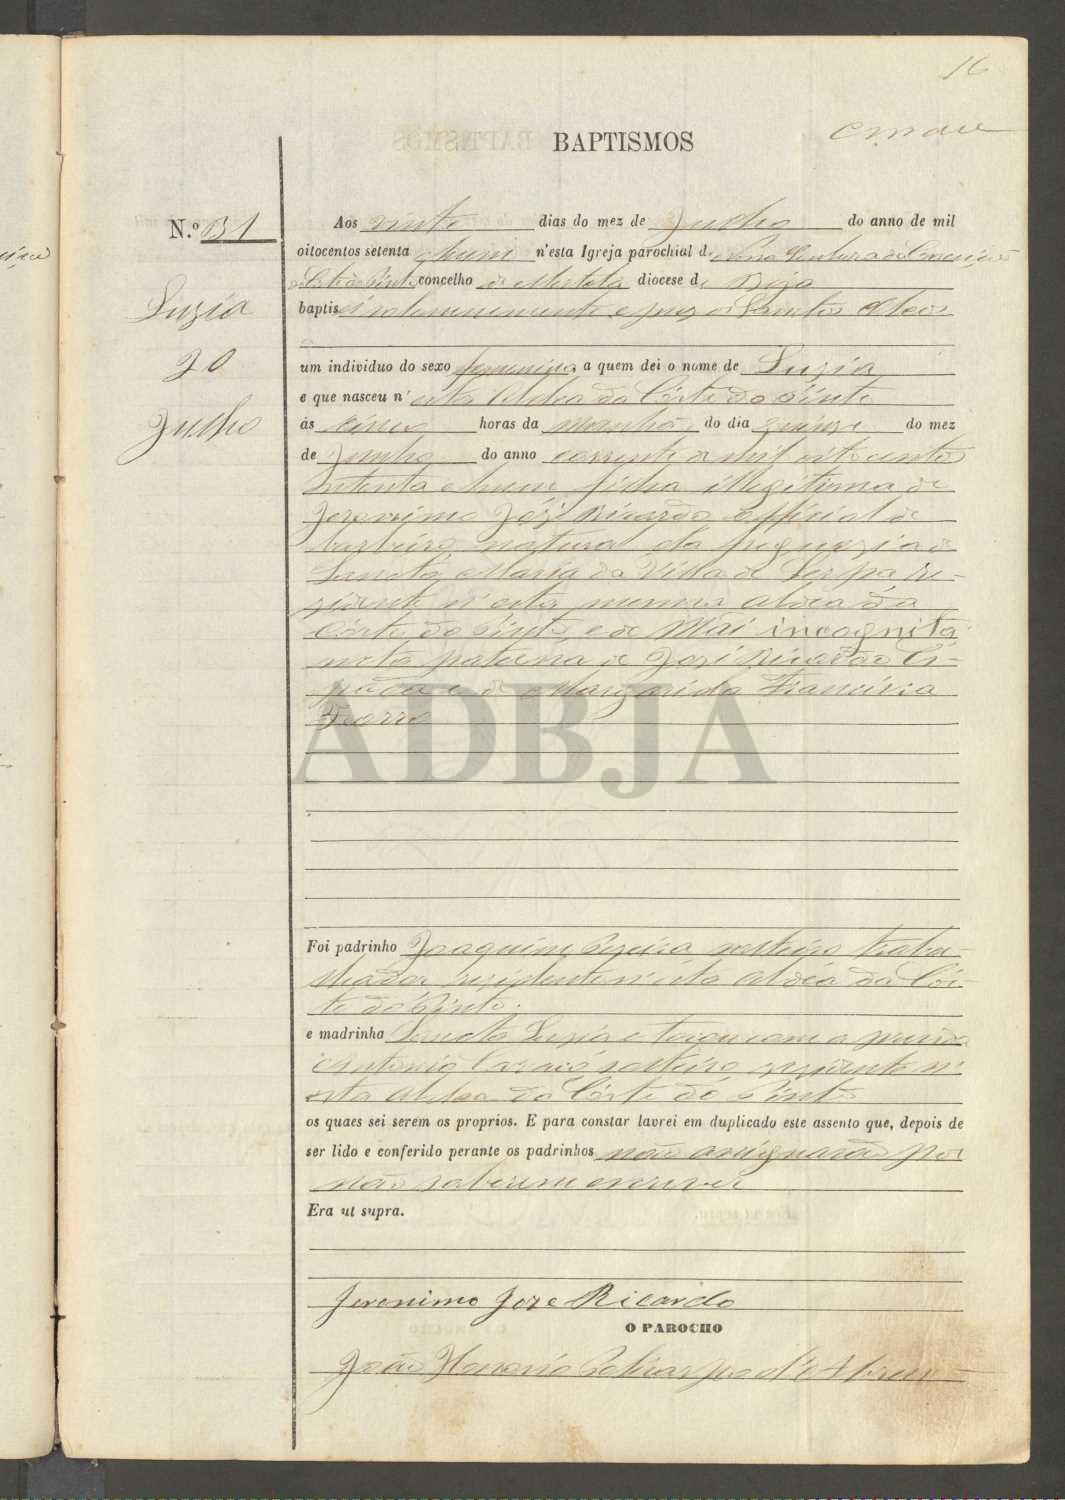 16
BAPTISMOS
N.º 31
Luzia
20
Julho
Aos vinte dias do mez de Julho do anno de mil
oitocentos setenta e hum n'esta Igreja parochial de Nossa Senhora da Conceição
da Corte do Pinto concelho de Mertola diocese de Beja
baptisei solemnemente e puz os Sanctos Oleos
um individuo do sexo femenino, a quem dei o nome de Luzia
e que nasceu n'esta Aldea da Côrte do Pinto
ás cinco horas da manhãa do dia quinze do mez
de Junho do anno corrente de mil oitocentos
setenta e hum filha illegitima de
Jeronimo José Ricardo official de
barbeiro, natural da freguezia de
Sancta Maria da Villa de Serpa re-
zidente n'esta mesma aldea da
Côrte do Pinto, e de Mãi incognita
neta paterna de José Ricardo
e de Margarida Francisca
ADBJA
Foi padrinho Joaquim solteiro traba-
lhador rezidente n'esta aldea da Côr-
te do Pinto.
e madrinha Sancta Luzia e tocou com a prenda
Antonio solteiro rezidente n'
esta aldea da Côrte do Pinto
os quaes sei serem os proprios. E para constar lavrei em duplicado este assento que, depois de
ser lido e conferido perante os padrinhos não assignarão por
não saberem escrever
Era ut supra.
Jeronimo Joze Ricardo
O PAROCHO
João Honorio d'Abreu